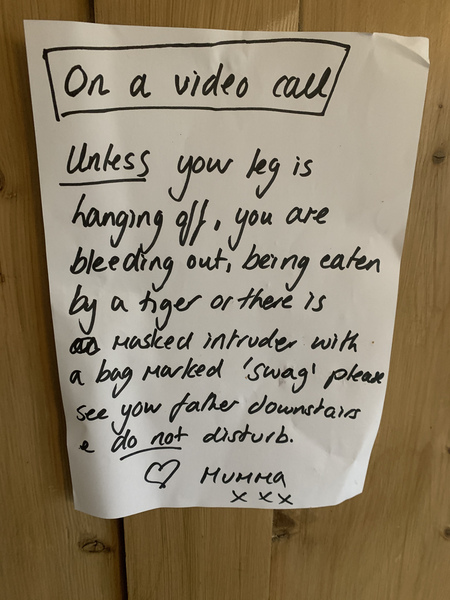 On a video call
Unless your leg is
hanging off, you are
bleeding out, being eaten
by a tiger or there is
masked intruder with
a bag marked 'swag' please
see your father downstairs
& do not disturb.
♡ MUMMA
x x x